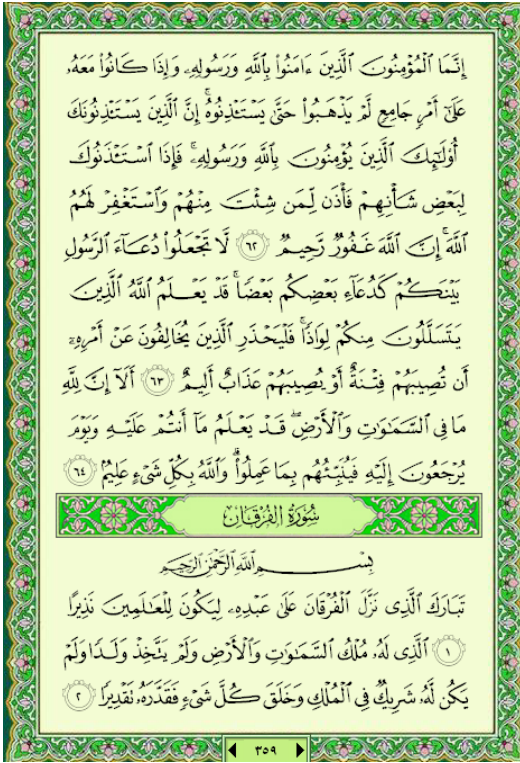 إِنَّمَا ٱلْمُؤْمِنُونَ ٱلَّذِينَ ءَامَنُوا۟ بِٱللَّهِ وَرَسُولِهِۦ وَإِذَا كَانُوا۟ مَعَهُۥ
عَلَىٰٓ أَمْرٍ جَامِعٍ لَّمْ يَذْهَبُوا۟ حَتَّىٰ يَسْتَـْٔذِنُوهُ ۚ إِنَّ ٱلَّذِينَ يَسْتَـْٔذِنُونَكَ
أُو۟لَـٰٓئِكَ ٱلَّذِينَ يُؤْمِنُونَ بِٱللَّهِ وَرَسُولِهِۦ ۚ فَإِذَا ٱسْتَـْٔذَنُوكَ
لِبَعْضِ شَأْنِهِمْ فَأْذَن لِّمَن شِئْتَ مِنْهُمْ وَٱسْتَغْفِرْ لَهُمُ
ٱللَّهَ ۚ إِنَّ ٱللَّهَ غَفُورٌ رَّحِيمٌ ٦٢ لَّا تَجْعَلُوا۟ دُعَآءَ ٱلرَّسُولِ
بَيْنَكُمْ كَدُعَآءِ بَعْضِكُم بَعْضًا ۚ قَدْ يَعْلَمُ ٱللَّهُ ٱلَّذِينَ
يَتَسَلَّلُونَ مِنكُمْ لِوَاذًا ۚ فَلْيَحْذَرِ ٱلَّذِينَ يُخَالِفُونَ عَنْ أَمْرِهِۦٓ
أَن تُصِيبَهُمْ فِتْنَةٌ أَوْ يُصِيبَهُمْ عَذَابٌ أَلِيمٌ ٦٣ أَلَآ إِنَّ لِلَّهِ
مَا فِى ٱلسَّمَـٰوَٰتِ وَٱلْأَرْضِ ۖ قَدْ يَعْلَمُ مَآ أَنتُمْ عَلَيْهِ وَيَوْمَ
يُرْجَعُونَ إِلَيْهِ فَيُنَبِّئُهُم بِمَا عَمِلُوا۟ ۗ وَٱللَّهُ بِكُلِّ شَىْءٍ عَلِيمٌۢ ٦٤
سُورَةُ الْفُرْقَانِ
بِسْمِ ٱللَّهِ ٱلرَّحْمَـٰنِ ٱلرَّحِيمِ
تَبَارَكَ ٱلَّذِى نَزَّلَ ٱلْفُرْقَانَ عَلَىٰ عَبْدِهِۦ لِيَكُونَ لِلْعَـٰلَمِينَ نَذِيرًا
١ ٱلَّذِى لَهُۥ مُلْكُ ٱلسَّمَـٰوَٰتِ وَٱلْأَرْضِ وَلَمْ يَتَّخِذْ وَلَدًا وَلَمْ
يَكُن لَّهُۥ شَرِيكٌ فِى ٱلْمُلْكِ وَخَلَقَ كُلَّ شَىْءٍ فَقَدَّرَهُۥ تَقْدِيرًا ٢
٣٥٩